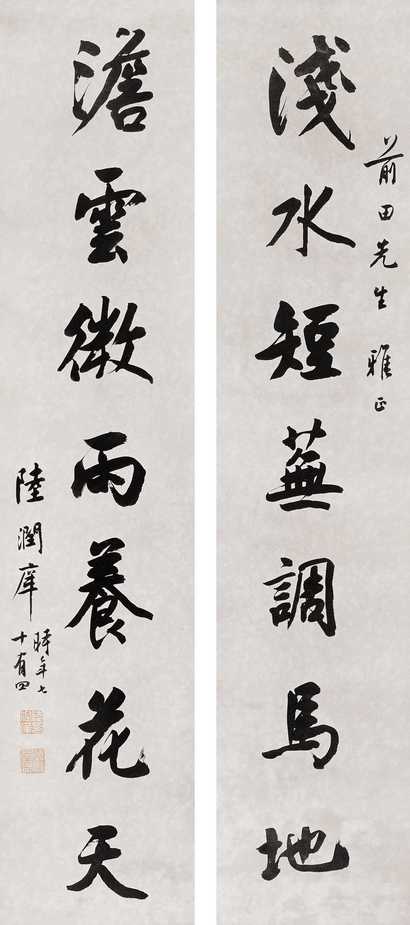 前田先生雅正
淺水短蕪調馬地
澹雲微雨養花天
陸潤庠時年七
十有四